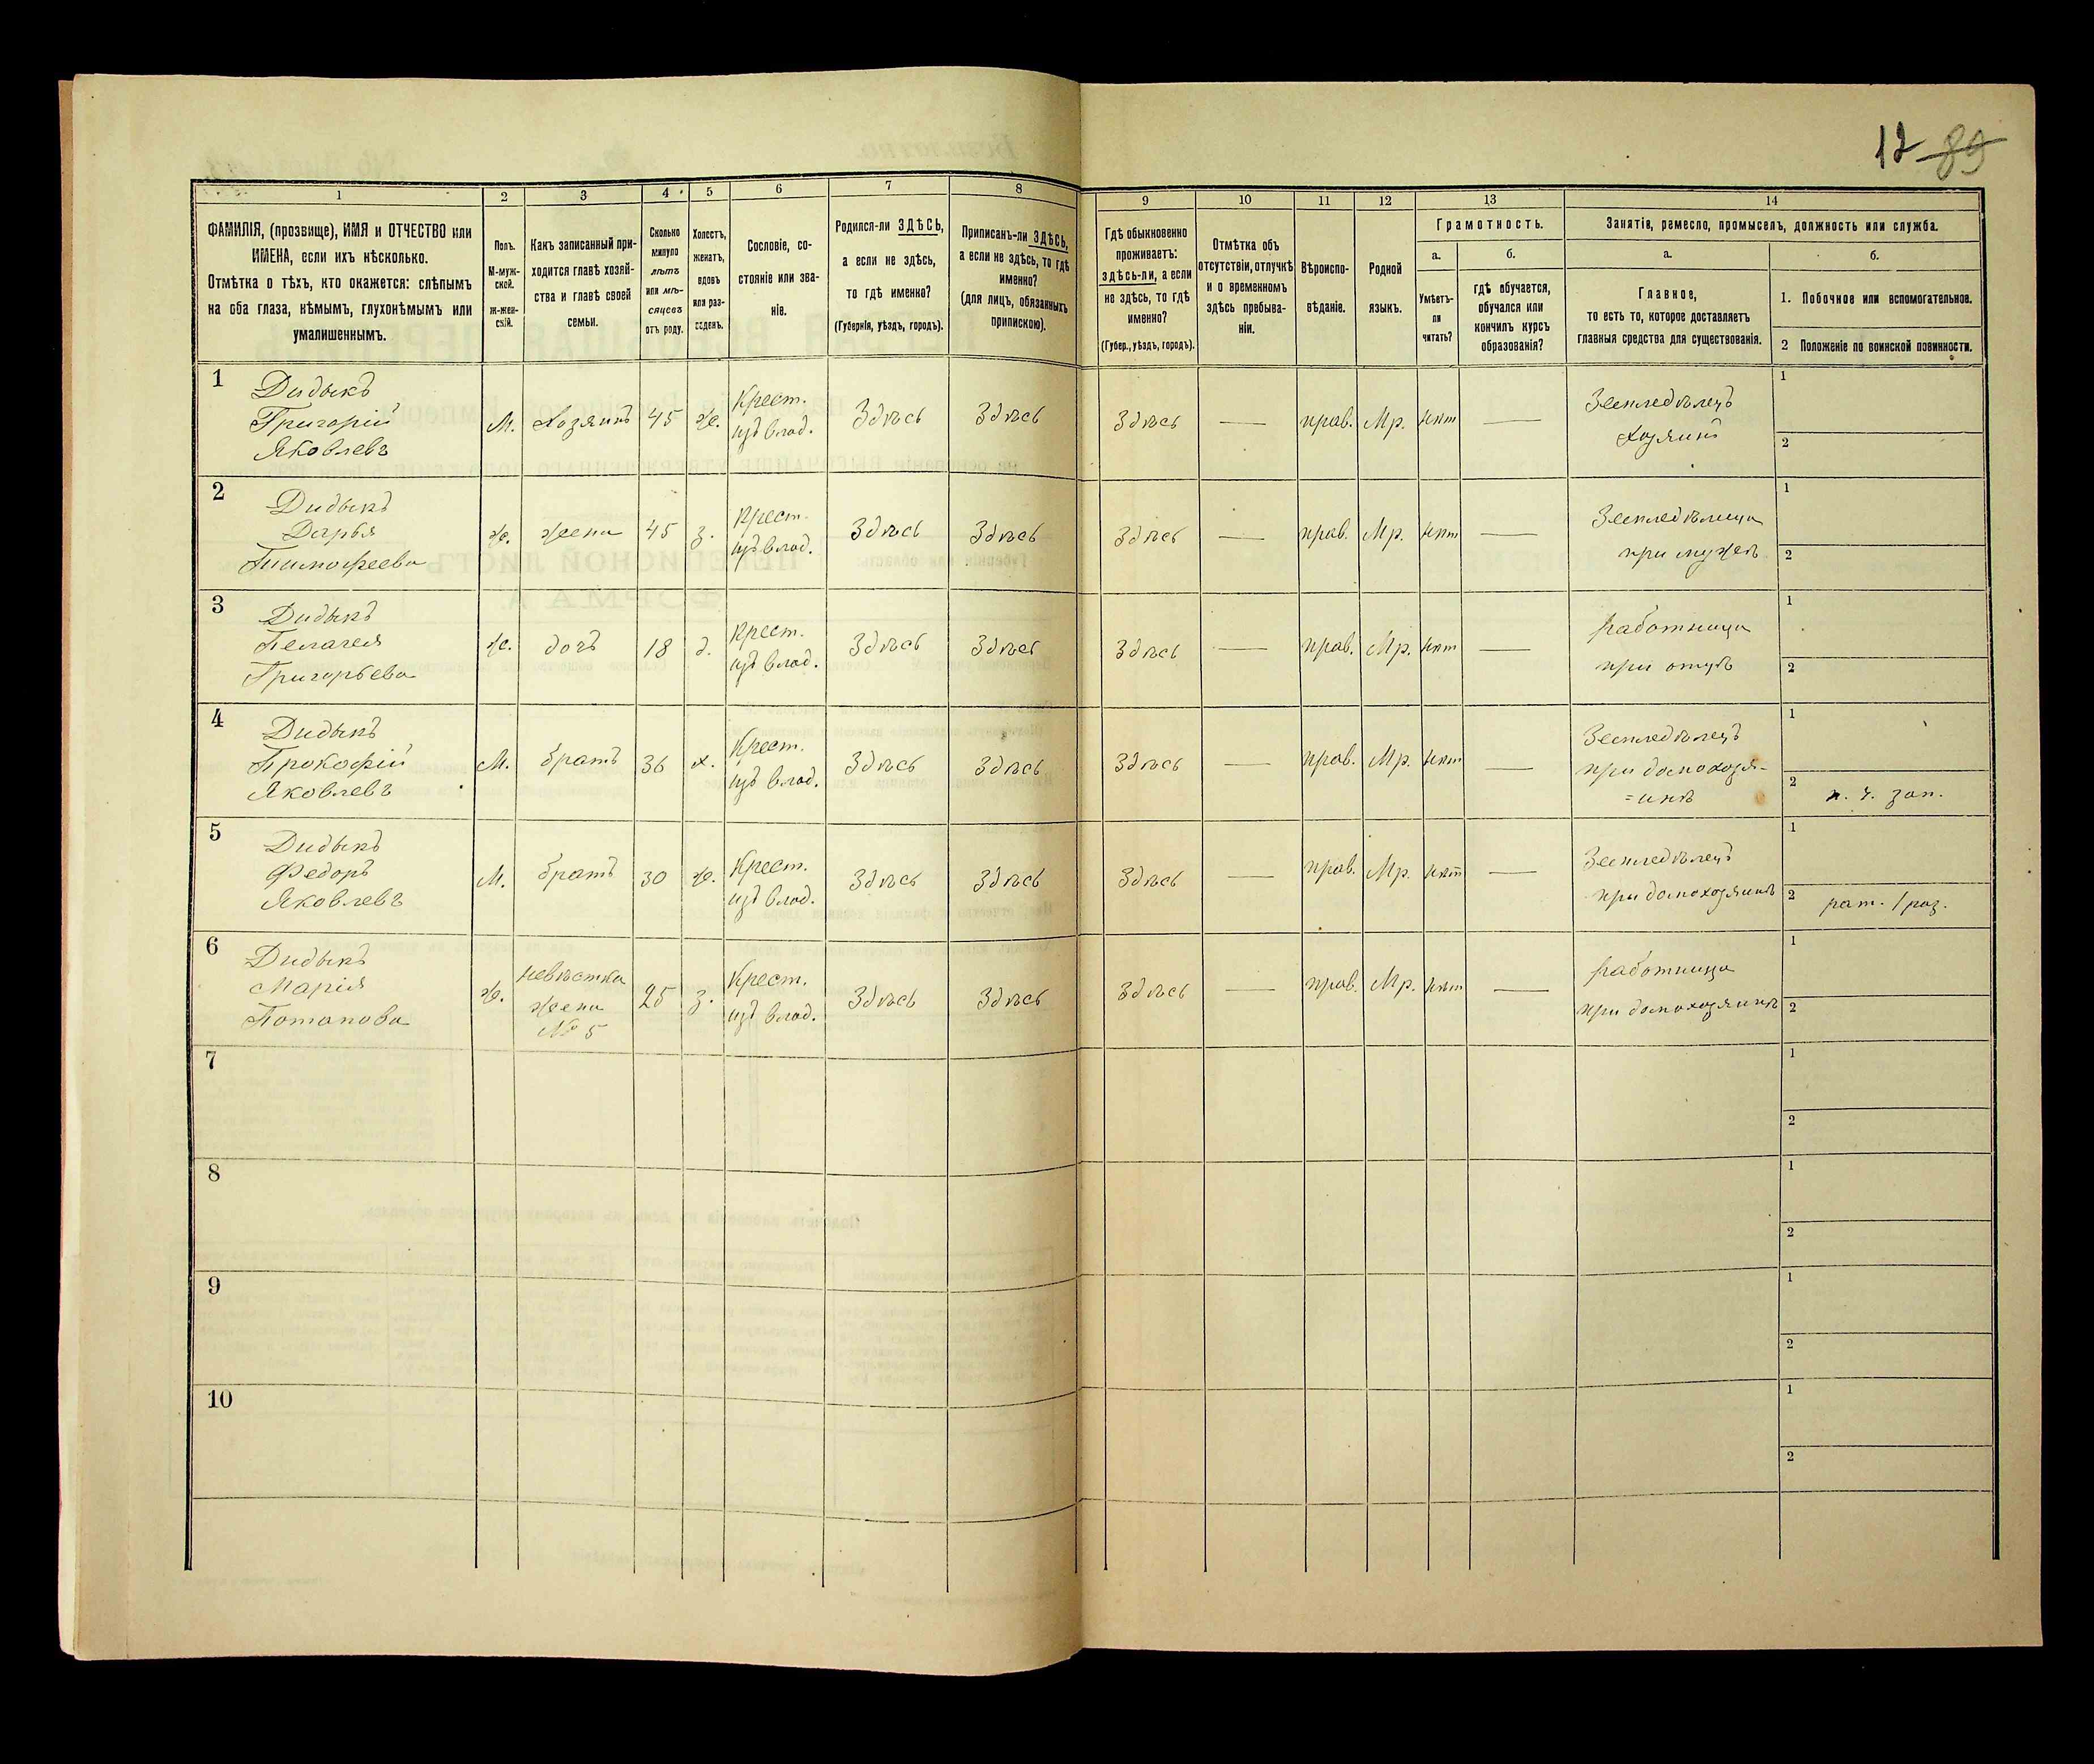 12 89
1 2 3 4 5 6 7 8 9 10 11 12 13 14
ФАМИЛІЯ, (прозвище), ИМЯ и ОТЧЕСТВО или
ИМЕНА, если ихъ нѣсколько.
Отмѣтка о тѣхъ, кто окажется: слѣпымъ
на оба глаза, нѣмымъ, глухонѣмымъ или
умалишеннымъ.
Полъ.
М-муж-
ской.
Ж-жен-
скій.
Какъ записанный при-
ходится главѣ хозяй-
ства и главѣ своей
семьи.
Сколько
минуло
лѣтъ
или мѣ-
сяцевъ
отъ роду.
Холостъ,
женатъ,
вдовъ
или раз-
веденъ.
Сословіе, со-
стояніе или зва-
ніе.
Родился-ли ЗДѢСЬ,
а если не здѣсь,
то гдѣ именно?
(Губернія, уѣздъ, городъ).
Приписанъ-ли ЗДѢСЬ,
а если не здѣсь, то гдѣ
именно?
(для лицъ, обязанныхъ
припискою).
Гдѣ обыкновенно
проживаетъ:
здѣсь-ли, а если
не здѣсь, то гдѣ
именно?
(Губер., уѣздъ, городъ).
Отмѣтка объ
отсутствіи, отлучкѣ
и о временномъ
здѣсь пребыва-
ніи.
Вѣроиспо-
вѣданіе.
Родной
языкъ.
Грамотность.
а.
Умѣетъ-
ли
читать?
б.
гдѣ обучается,
обучался или
кончилъ курсъ
образованія?
Занятія, ремесло, промыселъ, должность или служба.
а.
Главное,
то есть то, которое доставляетъ
главныя средства для существованія.
б.
1. Побочное или вспомогательное.
2 Положеніе по воинской повинности.
1 Дидыкъ
Григорій
Яковлевъ
М. Хозяинъ 45 ж. Крест.
изъ влад.
Здѣсь Здѣсь Здѣсь — прав. Мр. нѣт — Земледѣлецъ
хозяинъ
1
2
2 Дидыкъ
Дарья
Тимофеева
ж. жена 45 з. Крест.
изъ влад.
Здѣсь Здѣсь Здѣсь — прав. Мр. нѣт — Земледѣлица
при мужѣ
1
2
3 Дидыкъ
Пелагея
Григорьева
ж. дочь 18 д. Крест.
изъ влад.
Здѣсь Здѣсь Здѣсь — прав. Мр. нѣт — Работница
при отцѣ
1
2
4 Дидыкъ
Прокофій
Яковлевъ
М. братъ 36 х. Крест.
изъ влад.
Здѣсь Здѣсь Здѣсь — прав. Мр. нѣт — Земледѣлецъ
при домохозя-
=инѣ
1
2 н. ч. зап.
5 Дидыкъ
Федоръ
Яковлевъ
М. братъ 30 ж. Крест.
изъ влад.
Здѣсь Здѣсь Здѣсь — прав. Мр. нѣт — Земледѣлецъ
при домохозяинѣ
1
2 рат. 1 раз.
6 Дидыкъ
Марія
Потапова
ж. невѣстка
жена
№ 5
25 з. Крест.
изъ влад.
Здѣсь Здѣсь Здѣсь — прав. Мр. нѣт — Работница
при домохозяинѣ
1
2
7
1
2
8
1
2
9
1
2
10
1
2